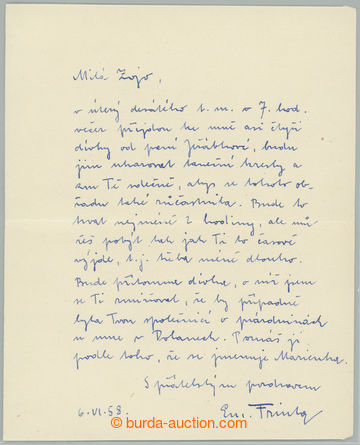 Milá Zojo,
v úterý desátého t. m. v 7. hod.
večer přijdou ke mně asi čtyři
dívky od paní Jeřábkové, budu
jim ukazovat taneční kresby a
zvu Tě srdečně, abys se tohoto ob-
řadu také zúčastnila. Bude to
trvat nejméně 2 hodiny, ale mů-
žeš pobýt tak jak Ti to časově
vyjde, t.j. třeba méně dlouho.
Bude přítomna dívka, o níž jsem
se Ti zmiňoval, že by případně
byla Tvou společnicí o prázdninách
u mne v Dolanech. Poznáš ji
podle toho, že se jmenuje Marienka.
S přátelským pozdravem
6. VI. 58. Em. Frinta
burda-auction.com